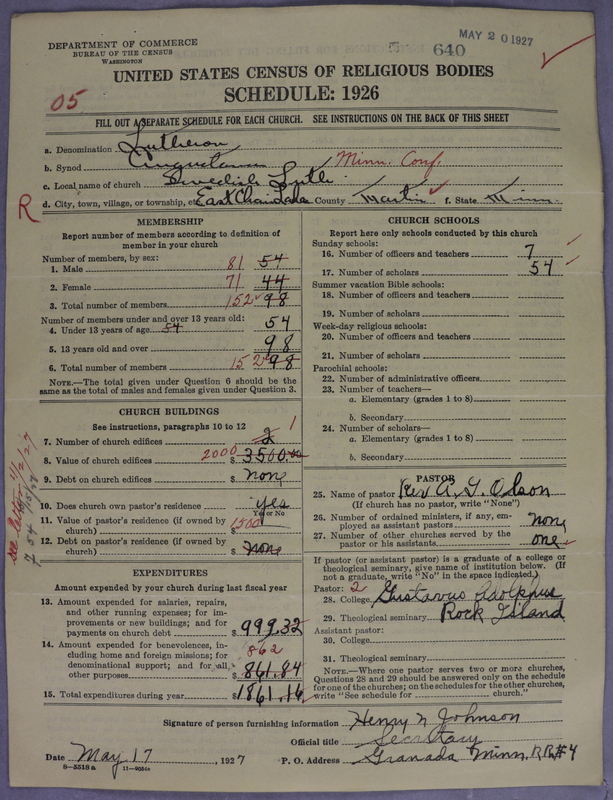 DEPARTMENT OF COMMERCE
BUREAU OF THE CENSUS
WASHINGTON
MAY 20 1927
640
UNITED STATES CENSUS OF RELIGIOUS BODIES
SCHEDULE: 1926
05
FILL OUT A SEPARATE SCHEDULE FOR EACH CHURCH. SEE INSTRUCTIONS ON THE BACK OF THIS SHEET
a. Denomination Lutheran
b. Synod Augustana Minn. Conf.
c. Local name of church Swedish Luth.
R d. City, town, village, or township, etc East Chain Lake County Martin f. State Minn.
MEMBERSHIP
Report number of members according to definition of
member in your church
Number of members, by sex:
1. Male 81 54
2. Female 71 44
3. Total number of members 152 98
Number of members under and over 13 years old:
4. Under 13 years of age 54 54
5. 13 years old and over 98
6. Total number of members 152 98
NOTE.—The total given under Question 6 should be the
same as the total of males and females given under Question 3.
CHURCH BUILDINGS
See instructions, paragraphs 10 to 12
7. Number of church edifices 2 1
8. Value of church edifices 2000 $3500.00
9. Debt on church edifices $ none
10. Does church own pastor's residence yes
Yes or No
11. Value of pastor's residence (if owned by
church) $ 1500
12. Debt on pastor's residence (if owned by
church) $ none
see letter 11/2/27
EXPENDITURES
Amount expended by your church during last fiscal year
13. Amount expended for salaries, repairs,
and other running expenses; for im-
provements or new buildings; and for
payments on church debt $ 999.32
14. Amount expended for benevolences, in-
cluding home and foreign missions; for
denominational support; and for all
other purposes 862 $ 861.84
15. Total expenditures during year $ 1861.16
CHURCH SCHOOLS
Report here only schools conducted by this church
Sunday schools:
16. Number of officers and teachers 7
17. Number of scholars 54
Summer vacation Bible schools:
18. Number of officers and teachers
19. Number of scholars
Week-day religious schools:
20. Number of officers and teachers
21. Number of scholars
Parochial schools:
22. Number of administrative officers
23. Number of teachers—
a. Elementary (grades 1 to 8)
b. Secondary
24. Number of scholars—
a. Elementary (grades 1 to 8)
b. Secondary
PASTOR
25. Name of pastor Rev A. G. Olson
(If church has no pastor, write "None")
26. Number of ordained ministers, if any, em-
ployed as assistant pastors none
27. Number of other churches served by the
pastor or his assistants one
If pastor (or assistant pastor) is a graduate of a college or
theological seminary, give name of institution below. (If
not a graduate, write "No" in the space indicated.)
Pastor: 2
28. College Gustavus Adolphus
29. Theological seminary Rock Island
Assistant pastor:
30. College
31. Theological seminary
NOTE.—Where one pastor serves two or more churches,
Questions 28 and 29 should be answered only on the schedule
for one of the churches; on the schedules for the other churches,
write "See schedule for church."
Signature of person furnishing information Henry N Johnson
Official title Secretary
Date May 17 1927 P. O. Address Granada Minn. RR#4
8—5518 a